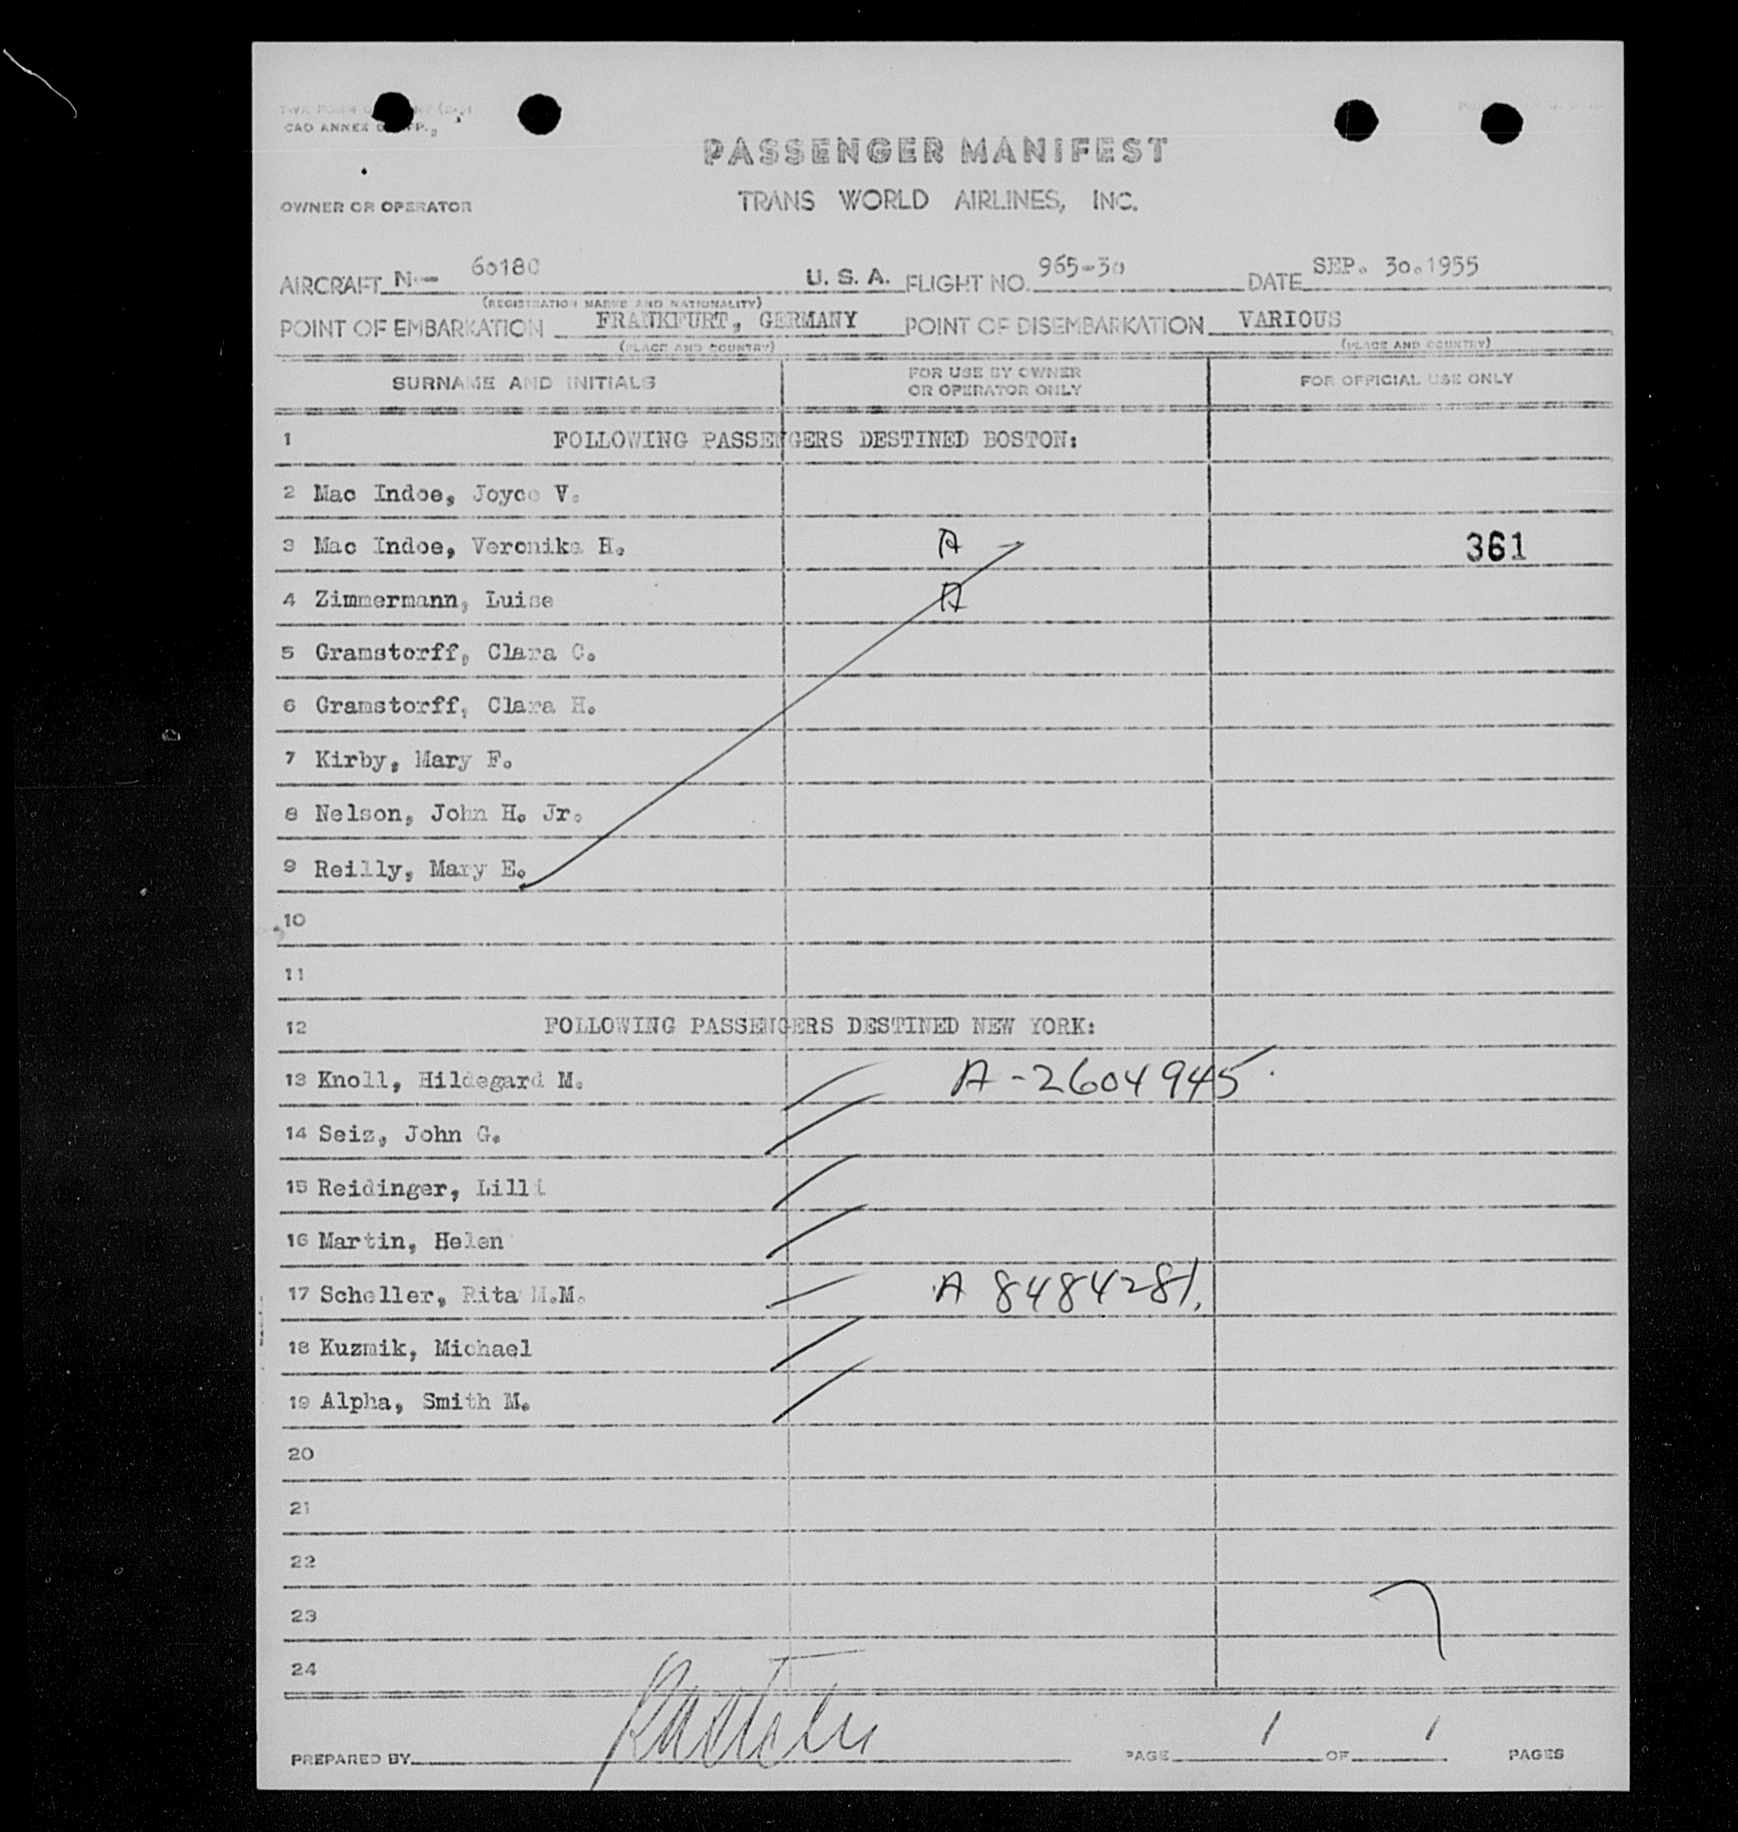 CAO ANNEX
PASSENGER MANIFEST
TRANS WORLD AIRLINES, INC.
OWNER OR OPERATOR
AIRCRAFT N-- 6018C U. S. A. FLIGHT NO. 965-30 DATE SEP. 30.1955
(REGISTRATION MARKS AND NATIONALITY)
POINT OF EMBARKATION FRANKFURT, GERMANY POINT OF DISEMBARKATION VARIOUS
(PLACE AND COUNTRY) (PLACE AND COUNTRY)
SURNAME AND INITIALS FOR USE BY OWNER OR OPERATOR ONLY FOR OFFICIAL USE ONLY
1 FOLLOWING PASSENGERS DESTINED BOSTON:
2 Mac Indoe, Joyce V.
3 Mac Indoe, Veronika H. A 361
4 Zimmermann, Luise A
5 Gramstorff, Clara C.
6 Gramstorff, Clara H.
7 Kirby, Mary F.
8 Nelson, John H. Jr.
9 Reilly, Mary E.
10
11
12 FOLLOWING PASSENGERS DESTINED NEW YORK:
13 Knoll, Hildegard M. A-2604945
14 Seiz, John G.
15 Reidinger, Lilli
16 Martin, Helen
17 Scheller, Rita M.M. A 8484281
18 Kuzmik, Michael
19 Alpha, Smith M.
20
21
22
23
24
PREPARED BY PAGE 1 OF 1 PAGES